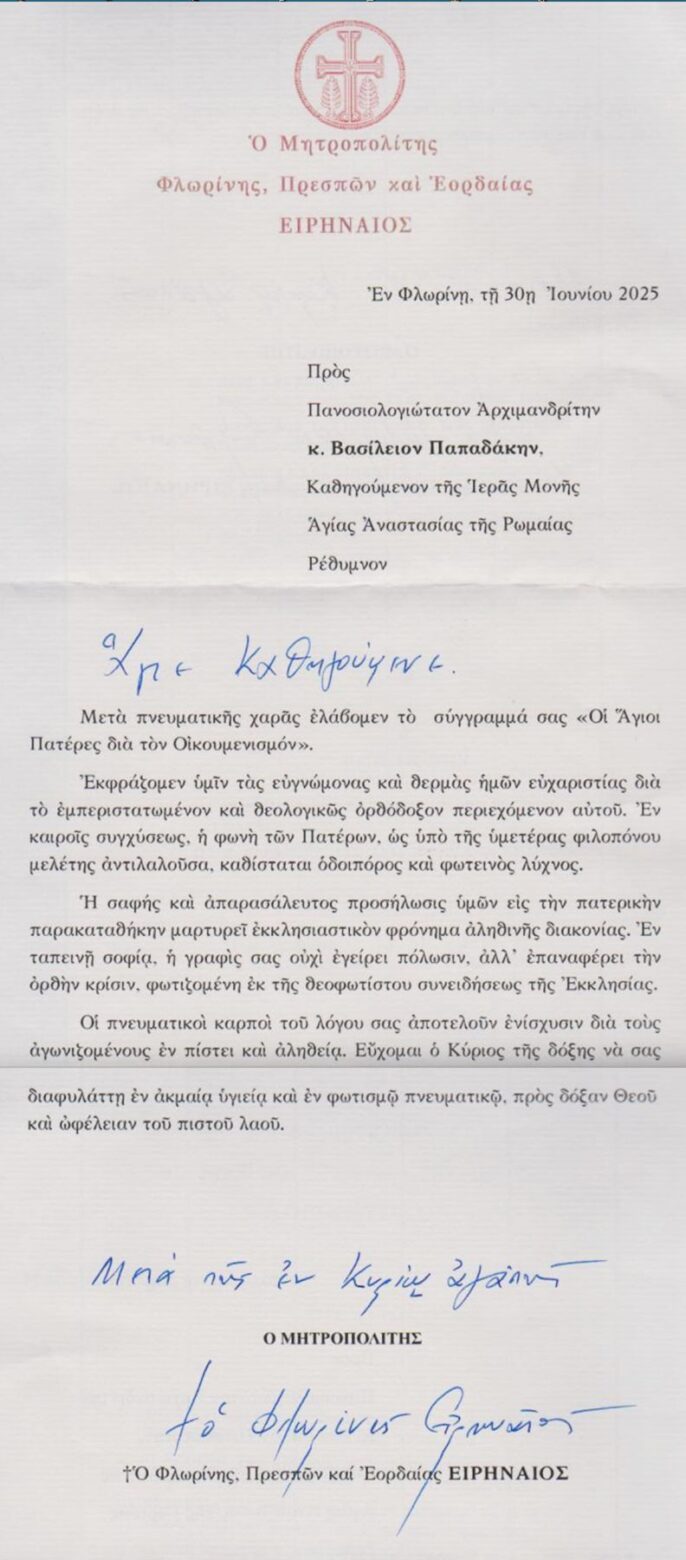 Ὁ Μητροπολίτης
Φλωρίνης, Πρεσπῶν καὶ Ἐορδαίας
ΕΙΡΗΝΑΙΟΣ
Ἐν Φλωρίνῃ, τῇ 30ῃ Ἰουνίου 2025
Πρὸς
Πανοσιολογιώτατον Ἀρχιμανδρίτην
κ. Βασίλειον Παπαδάκην,
Καθηγούμενον τῆς Ἱερᾶς Μονῆς
Ἁγίας Ἀναστασίας τῆς Ρωμαίας
Ρέθυμνον
Ἅγιε Καθηγούμενε.
Μετὰ πνευματικῆς χαρᾶς ἐλάβομεν τὸ σύγγραμμά σας «Οἱ Ἅγιοι
Πατέρες διὰ τὸν Οἰκουμενισμόν».
Ἐκφράζομεν ὑμῖν τὰς εὐγνώμονας καὶ θερμὰς ἡμῶν εὐχαριστίας διὰ
τὸ ἐμπεριστατωμένον καὶ θεολογικῶς ὀρθόδοξον περιεχόμενον αὐτοῦ. Ἐν
καιροῖς συγχύσεως, ἡ φωνὴ τῶν Πατέρων, ὡς ὑπὸ τῆς ὑμετέρας φιλοπόνου
μελέτης ἀντιλαλοῦσα, καθίσταται ὁδοιπόρος καὶ φωτεινὸς λύχνος.
Ἡ σαφὴς καὶ ἀπαρασάλευτος προσήλωσις ὑμῶν εἰς τὴν πατερικὴν
παρακαταθήκην μαρτυρεῖ ἐκκλησιαστικὸν φρόνημα ἀληθινῆς διακονίας. Ἐν
ταπεινῇ σοφίᾳ, ἡ γραφὶς σας οὐχὶ ἐγείρει πόλωσιν, ἀλλ’ ἐπαναφέρει τὴν
ὀρθὴν κρίσιν, φωτιζομένη ἐκ τῆς θεοφωτίστου συνειδήσεως τῆς Ἐκκλησίας.
Οἱ πνευματικοὶ καρποὶ τοῦ λόγου σας ἀποτελοῦν ἐνίσχυσιν διὰ τοὺς
ἀγωνιζομένους ἐν πίστει καὶ ἀληθείᾳ. Εὔχομαι ὁ Κύριος τῆς δόξης νὰ σας
διαφυλάττῃ ἐν ἀκμαίᾳ ὑγιείᾳ καὶ ἐν φωτισμῷ πνευματικῷ, πρὸς δόξαν Θεοῦ
καὶ ὠφέλειαν τοῦ πιστοῦ λαοῦ.
Μετὰ τῆς ἐν Κυρίῳ ἀγάπης
Ο ΜΗΤΡΟΠΟΛΙΤΗΣ
†ὁ Φλωρίνης Εἰρηναῖος
†Ὁ Φλωρίνης, Πρεσπῶν καί Ἐορδαίας ΕΙΡΗΝΑΙΟΣ